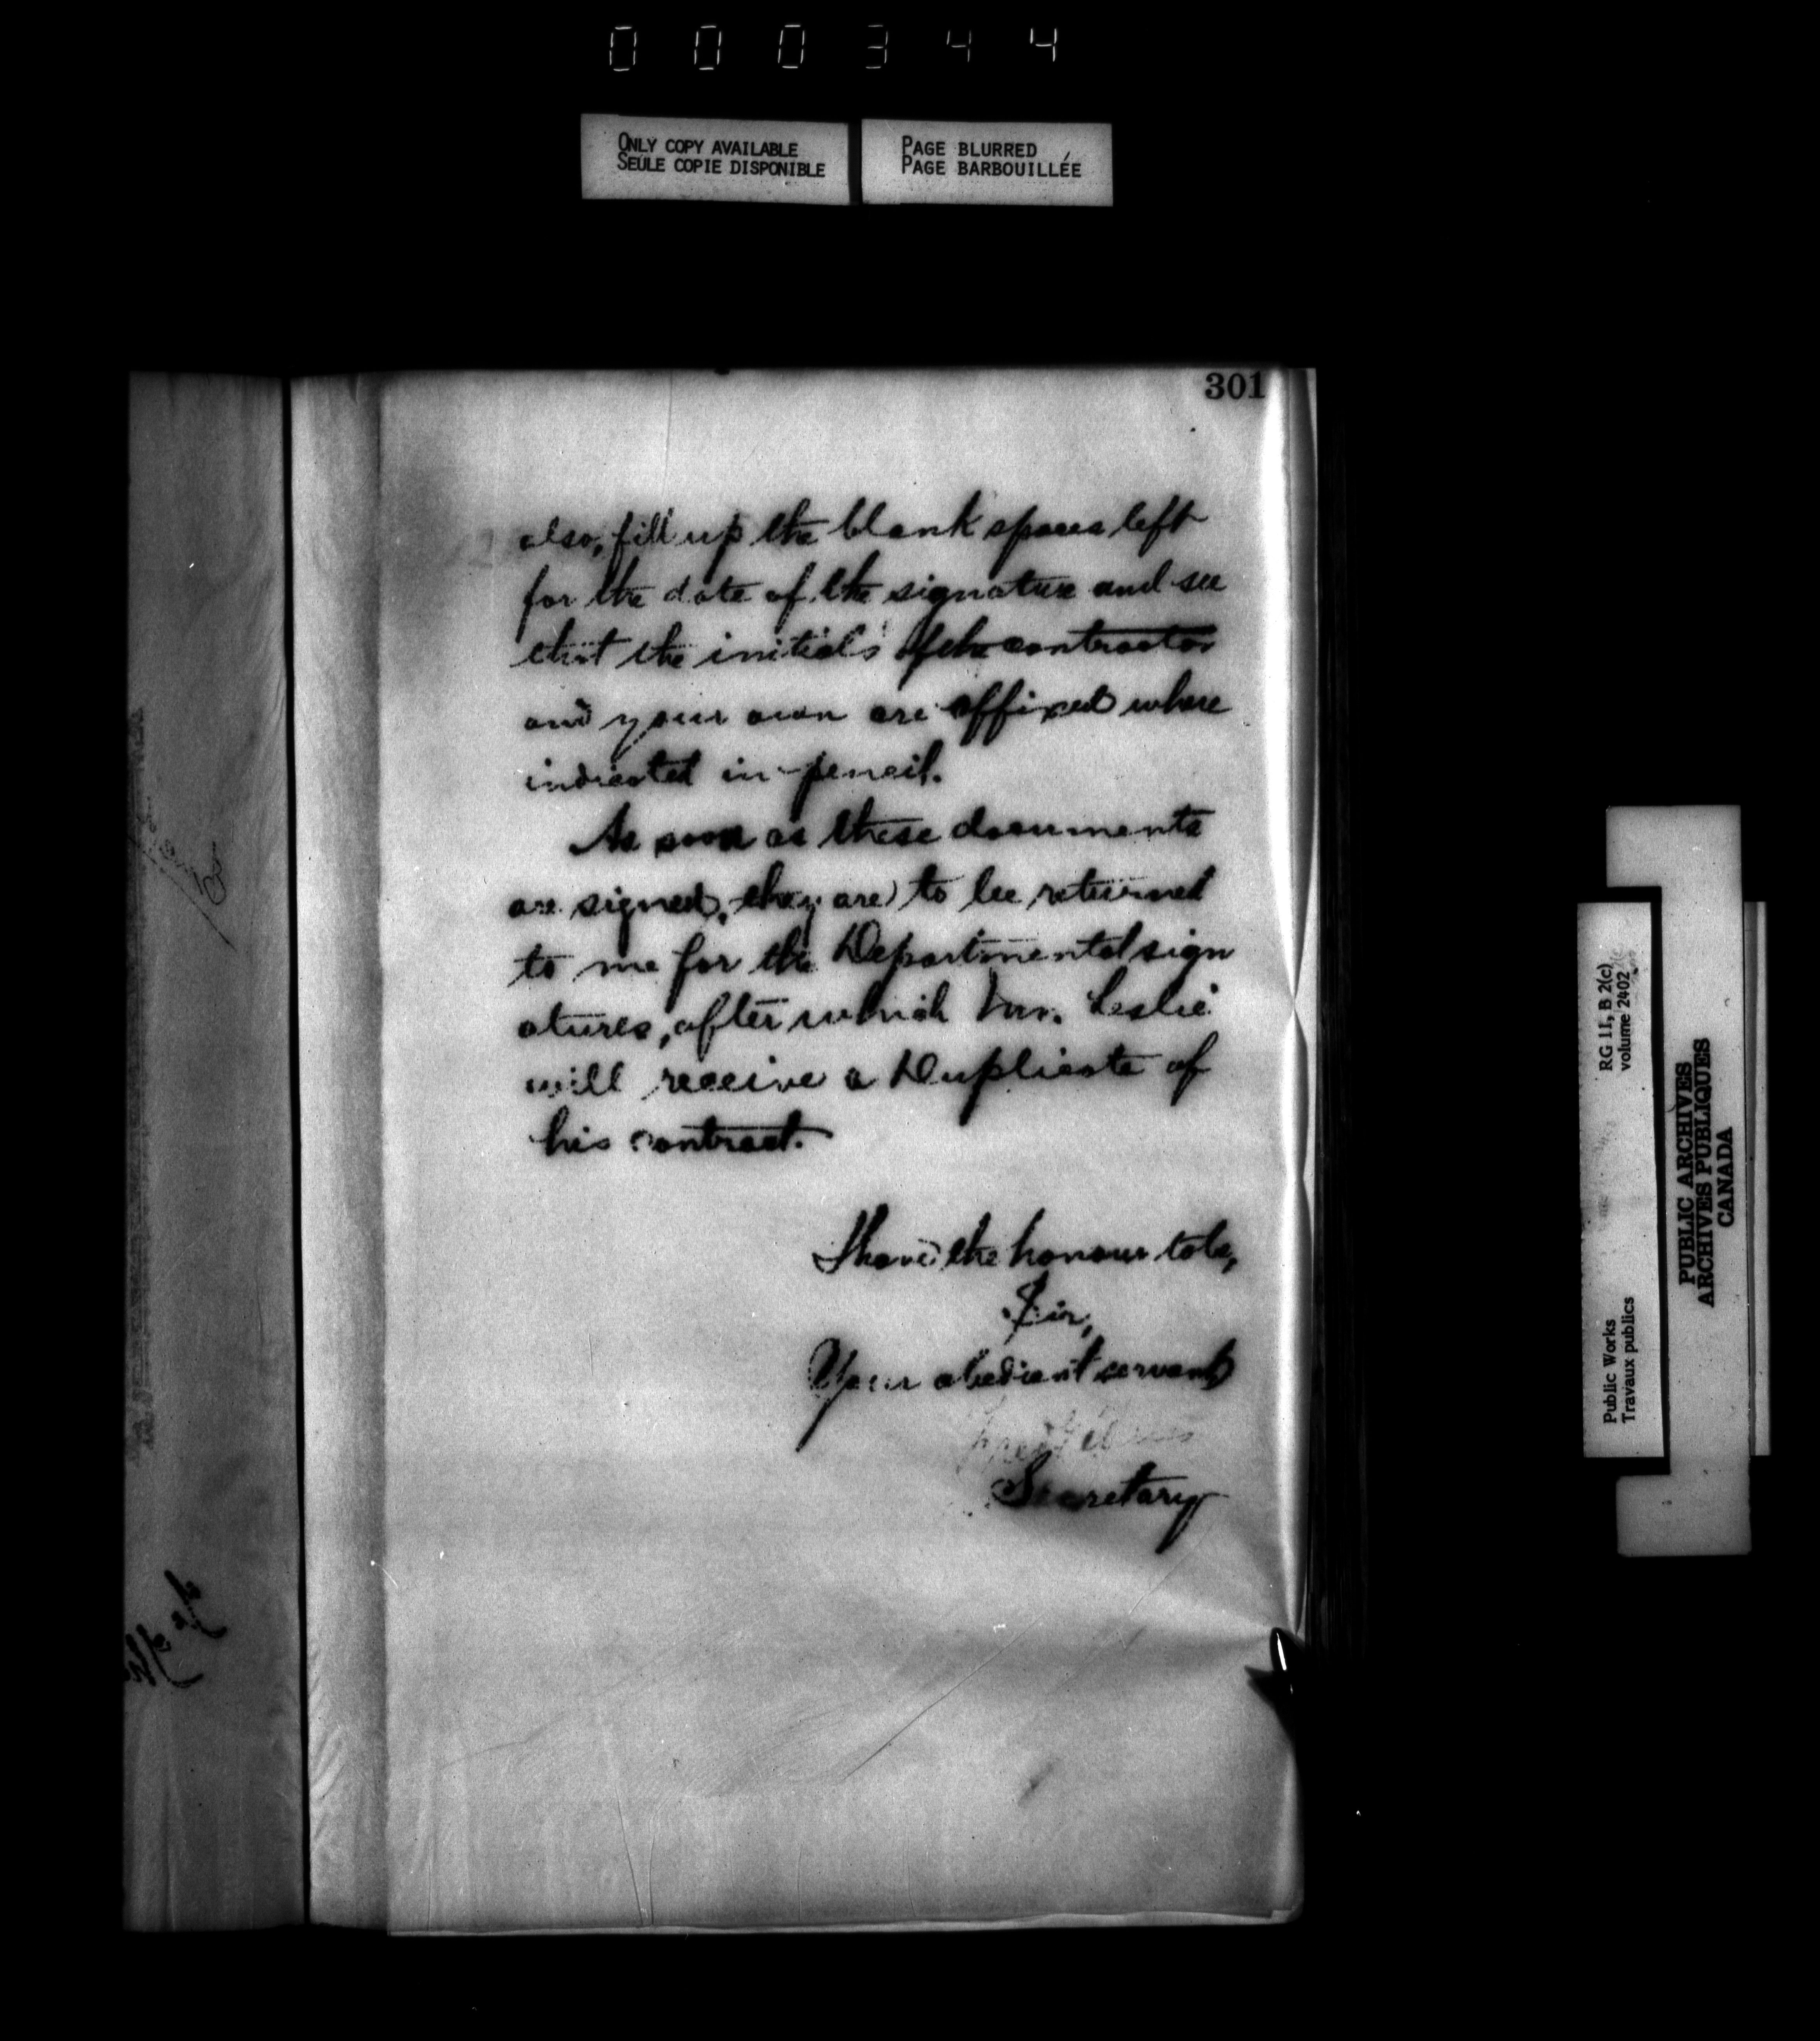 000344
ONLY COPY AVAILABLE
SEULE COPIE DISPONIBLE
PAGE BLURRED
PAGE BARBOUILLÉE
301
also, fill up the blank spaces left
for the date of the signature and see
that the initials of the contractor
and your own are affixed where
indicated in pencil.
As soon as these documents
are signed, they are to be returned
to me for the Departmental sign
atures, after which Mr. Leslie
will receive a Duplicate of
his contract.
I have the honour to be,
Sir,
Your obedient servant
Secretary
RG 11, B 2(c)
volume 2402
Public Works
Travaux publics
PUBLIC ARCHIVES
ARCHIVES PUBLIQUES
CANADA